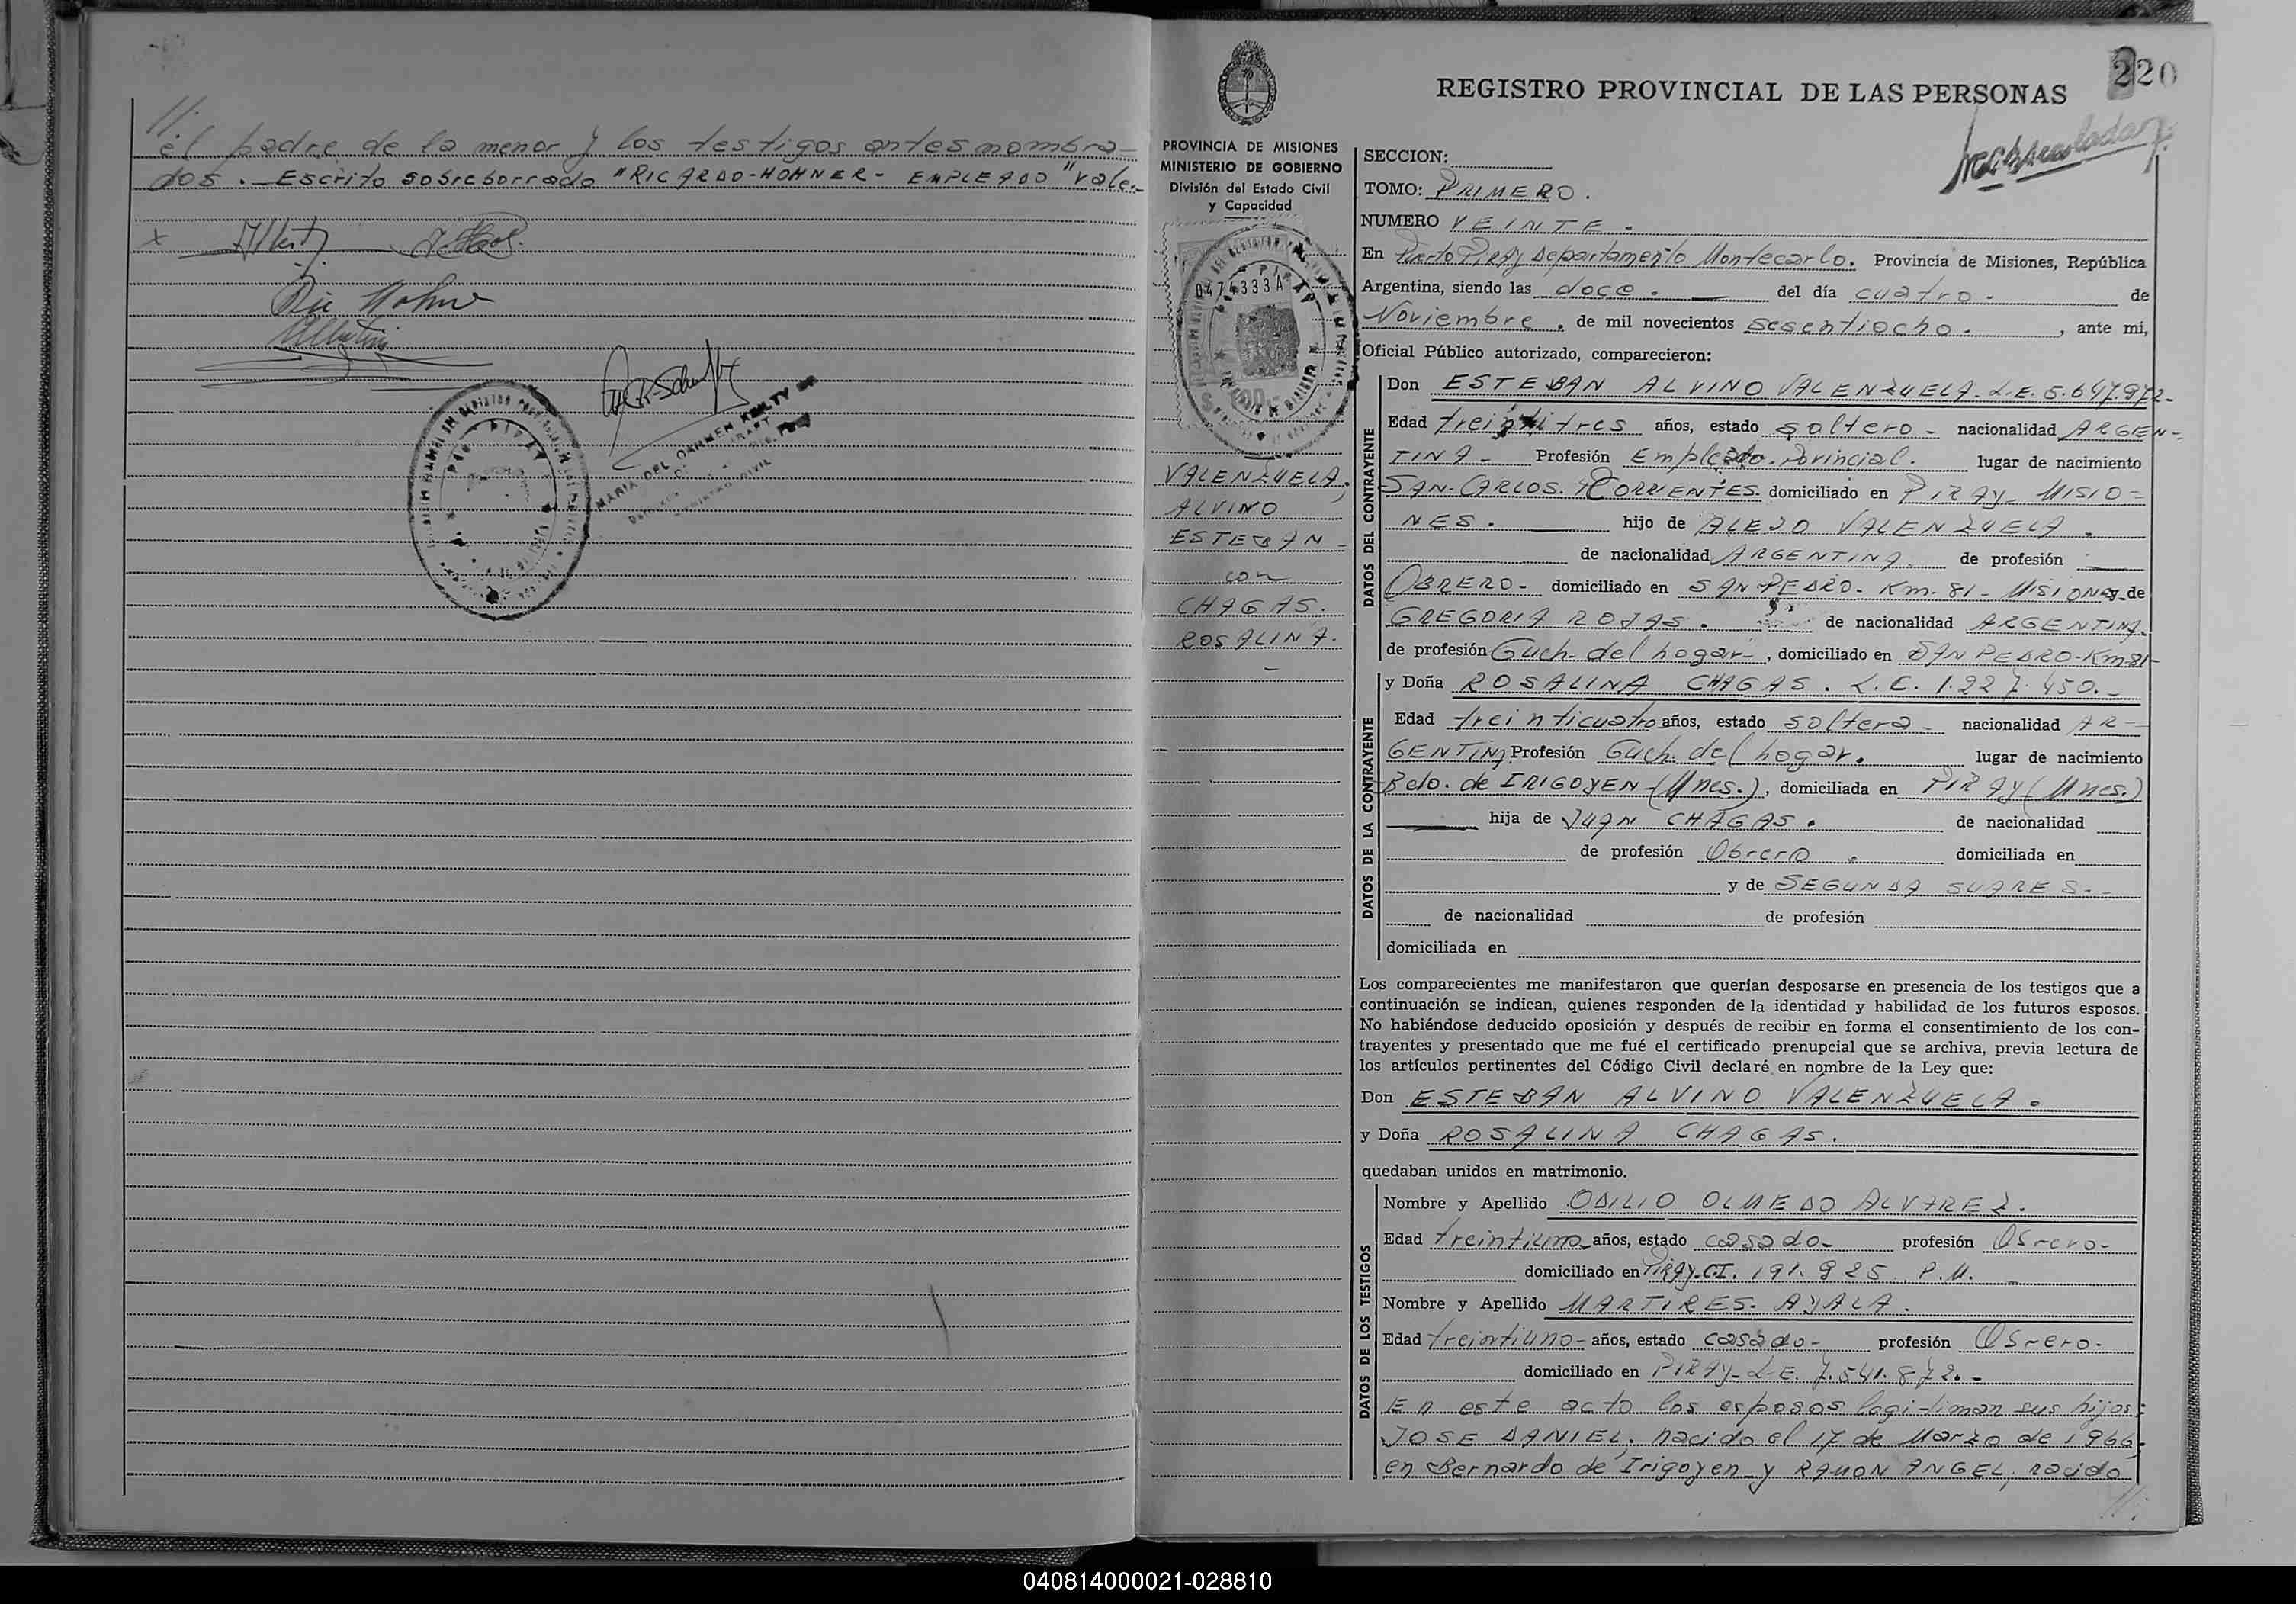 //.
el padre de la menor y los testigos antes nombra-
dos. Escrito sobreborrado "RICARDO-HOHNER- EMPLEADO" vale.-
MARIA DEL CARMEN KEILTY
REGISTRO CIVIL
220
REGISTRO PROVINCIAL DE LAS PERSONAS
PROVINCIA DE MISIONES
MINISTERIO DE GOBIERNO
División del Estado Civil
y Capacidad
0474333A
VALENZUELA,
ALVINO
ESTEBAN-
con
CHAGAS.
ROSALINA.
-
SECCION:
TOMO: PRIMERO.
NUMERO VEINTE.
En Puerto PIRAY Departamento Montecarlo. Provincia de Misiones, República
Argentina, siendo las doce. del día cuatro - de
Noviembre, de mil novecientos sesentiocho. , ante mi,
Oficial Público autorizado, comparecieron:
DATOS DEL CONTRAYENTE
Don ESTEBAN ALVINO VALENZUELA. L.E. 5.647.972-
Edad treintitres años, estado soltero - nacionalidad ARGEN-
TINA - Profesión Empleado. Provincial. lugar de nacimiento
SAN-CARLOS. CORRIENTES. domiciliado en PIRAY- MISIO-
NES. hijo de ALEJO VALENZUELA.
de nacionalidad ARGENTINA. de profesión
OBRERO- domiciliado en SAN-PEDRO. Km. 81 - MISIONES y de
GREGORIA ROJAS. de nacionalidad ARGENTINA.
de profesión Queh. del hogar-, domiciliado en SAN PEDRO-Km-81-
DATOS DE LA CONTRAYENTE
y Doña ROSALINA CHAGAS. L.C. 1.227.450.-
Edad treinticuatro años, estado soltera - nacionalidad AR-
GENTINA Profesión Queh. del hogar. lugar de nacimiento
Bdo. de IRIGOYEN-(Mnes.), domiciliada en PIRAY (Mnes.)
hija de JUAN CHAGAS. de nacionalidad
de profesión Obrero. domiciliada en
y de SEGUNDA SUARES.-
de nacionalidad de profesión
domiciliada en
Los comparecientes me manifestaron que querían desposarse en presencia de los testigos que a
continuación se indican, quienes responden de la identidad y habilidad de los futuros esposos.
No habiéndose deducido oposición y después de recibir en forma el consentimiento de los con-
trayentes y presentado que me fué el certificado prenupcial que se archiva, previa lectura de
los artículos pertinentes del Código Civil declaré en nombre de la Ley que:
Don ESTEBAN ALVINO VALENZUELA.
y Doña ROSALINA CHAGAS.
quedaban unidos en matrimonio.
DATOS DE LOS TESTIGOS
Nombre y Apellido ODILIO OLMEDO ALVAREZ.
Edad treintiuno años, estado casado- profesión Obrero-
domiciliado en PIRAY-C.I. 191.925 P.M.
Nombre y Apellido MARTIRES. AYALA.
Edad treintiuno- años, estado casado- profesión Obrero-
domiciliado en PIRAY- L.E. 7.541.872.-
En este acto los esposos legitiman sus hijos:
JOSE DANIEL, nacido el 17 de Marzo de 1966,
en Bernardo de Irigoyen y RAMON ANGEL, nacido
//.
040814000021-028810